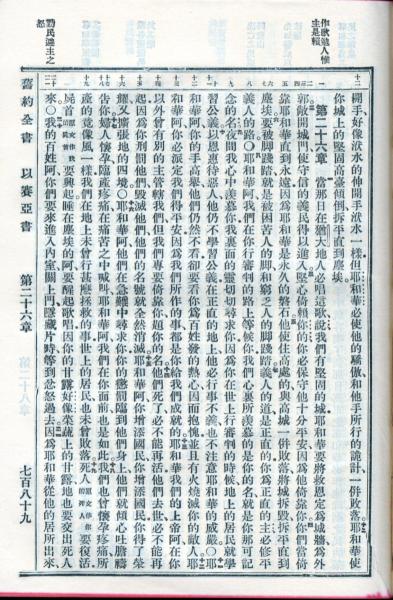 作歌勸人惟主是賴
開手好像洑水的伸開手洑水一樣但耶和華必使他的驕傲和他手所行的詭計一併敗落耶和華使
你城上的堅固高臺傾倒拆平直到塵埃
第二十六章 當那日在猶大地人必唱這歌說我們有堅固的城耶和華要將救恩定為城牆為外
郭敞開城門使守信的義民得以進入堅心倚賴你的你必保守他十分平安因為他倚靠你你們當倚
靠耶和華直到永遠因為耶和華是永久的磐石他使住高處的與高城一併敗落將城拆毀拆平直到
塵埃要被腳踐踏就是被困苦人的腳和窮乏人的腳踐踏義人的道是正直的你為正直的主必修平
義人的路○耶和華阿我們在你行審判的路上等候你我們心裏所羨慕的是你的名就是你那可記
念的名夜間我心中羨慕你我裏面的靈切切尋求你因為你在世上行審判的時候地上的居民就學
習公義以恩惠待惡人他仍不學習公義在正直的地上他必行事不義也不注意耶和華的威嚴○耶
和華阿你的手高舉他們仍然不看卻要看你為百姓發的熱心因而抱愧並且有火燒滅你的敵人耶
和華阿你必派定我們得平安因為我們所作的事都是你給我們成就的耶和華我們的上帝阿在你
以外曾有別的主管轄我們但我們專要倚靠你題你的名他們死了必不能再活他們去世必不能再
起因為你刑罰他們毀滅他們他們的名號就全然消滅耶和華阿你增添國民你增添國民你得了榮
耀又擴張地的四境○耶和華阿他們在急難中尋求你你的懲罰臨到他們身上他們就傾吐膽禱
告你婦人懷孕臨產疼痛在痛苦之中喊叫耶和華阿我們在你面前也是如此我們也曾懷孕疼痛所
產的竟像風一樣我們在地上未曾行甚麼拯救的事世上的居民也未曾敗落死人原文作你的死人要復活
屍首原文作我的屍首要興起睡在塵埃的阿要醒起歌唱因你的甘露好像菜蔬上的甘露地也要交出死人
來○我的百姓阿你們要來進入內室關上門隱藏片時等到忿怒過去因為耶和華從他的居所出來
舊約全書 以賽亞書 第二十六章 七百八十九